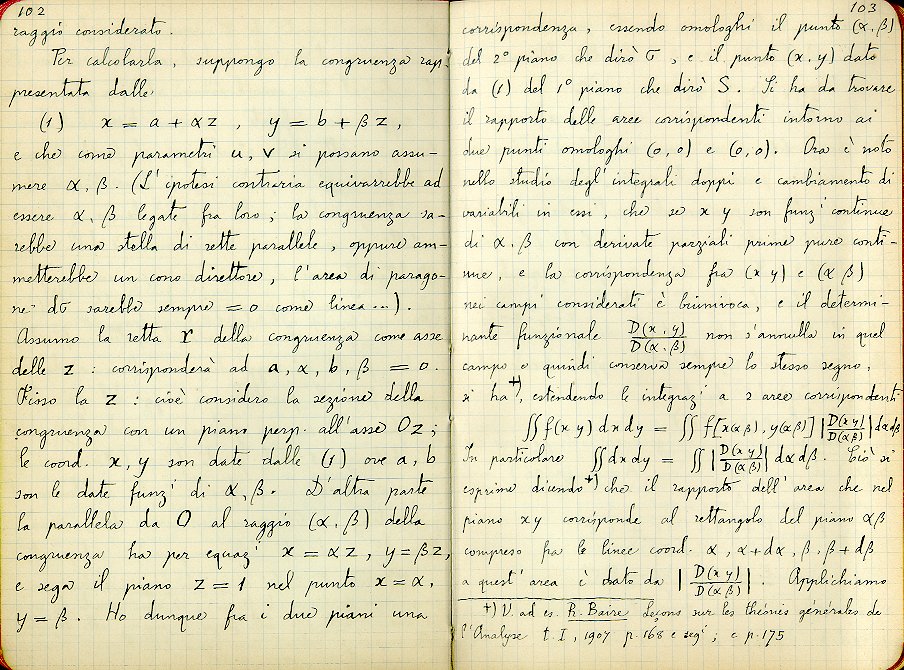 102
raggio considerato.
Per calcolarla, suppongo la congruenza rap-
presentata dalle
(1) x = a + αz , y = b + βz ,
e che come parametri u, v si possano assu-
mere α, β. (L'ipotesi contraria equivarrebbe ad
essere α, β legate fra loro; la congruenza sa-
rebbe una stella di rette parallele, oppure am-
metterebbe un cono direttore, l'area di parago-
ne dσ sarebbe sempre = 0 come linea...).
Assumo la retta r della congruenza come asse
delle z : corrisponderà ad a, α, b, β = 0.
Fisso la z : cioè considero la sezione della
congruenza con un piano perp. all'asse Oz;
le coord. x, y son date dalle (1) ove a, b
son le date funz' di α, β. D'altra parte
la parallela da O al raggio (α, β) della
congruenza ha per equaz' x = αz, y = βz,
e sega il piano z = 1 nel punto x = α,
y = β. Ho dunque fra i due piani una
103
corrispondenza, essendo omologhi il punto (α, β)
del 2° piano che dirò σ, e il punto (x, y) dato
da (1) del 1° piano che dirò S. Si ha da trovare
il rapporto delle aree corrispondenti intorno ai
due punti omologhi (0, 0) e (0, 0). Ora è noto
nello studio degl'integrali doppi e cambiamento di
variabili in essi, che se x y son funz' continue
di α, β con derivate parziali prime pure conti-
nue, e la corrispondenza fra (x y) e (α β)
nei campi considerati è biunivoca, e il determi-
nante funzionale D(x, y)/D(α, β) non s'annulla in quel
campo e quindi conserva sempre lo stesso segno,
si ha +), estendendo le integraz' a 2 aree corrispondenti
∬ f(x y) dx dy = ∬ f[x(α β), y(α β)] |D(x y)/D(α β)| dα dβ
In particolare ∬ dx dy = ∬ |D(x y)/D(α β)| dα dβ. Ciò si
esprime dicendo +) che il rapporto dell'area che nel
piano xy corrisponde al rettangolo del piano αβ
compreso fra le linee coord. α, α+dα, β, β+dβ
a quest'area è dato da |D(x y)/D(α β)|. Applichiamo
+) V. ad es. R. Baire Leçons sur les théories générales de
l'Analyse t. I, 1907 p. 168 e seg'; e p. 175